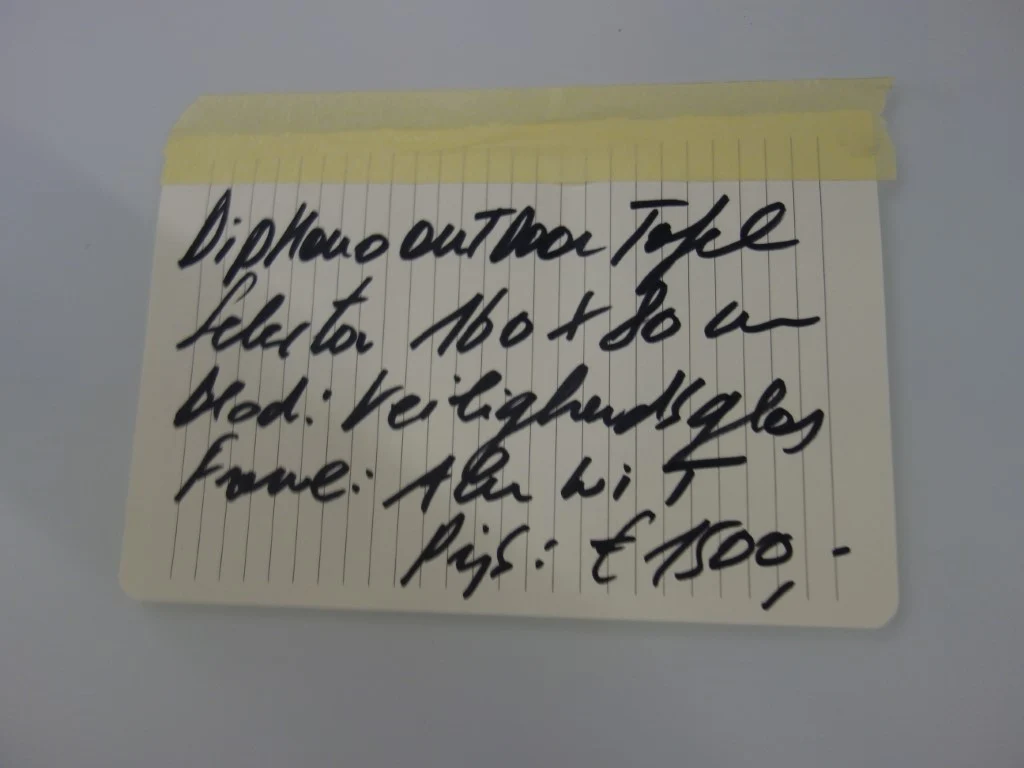 Diphano outDoor Tafel
Selector 160 x 80 cm
Blad: Veiligheidsglas
Frame: Alu wit
Prijs: € 1500,-